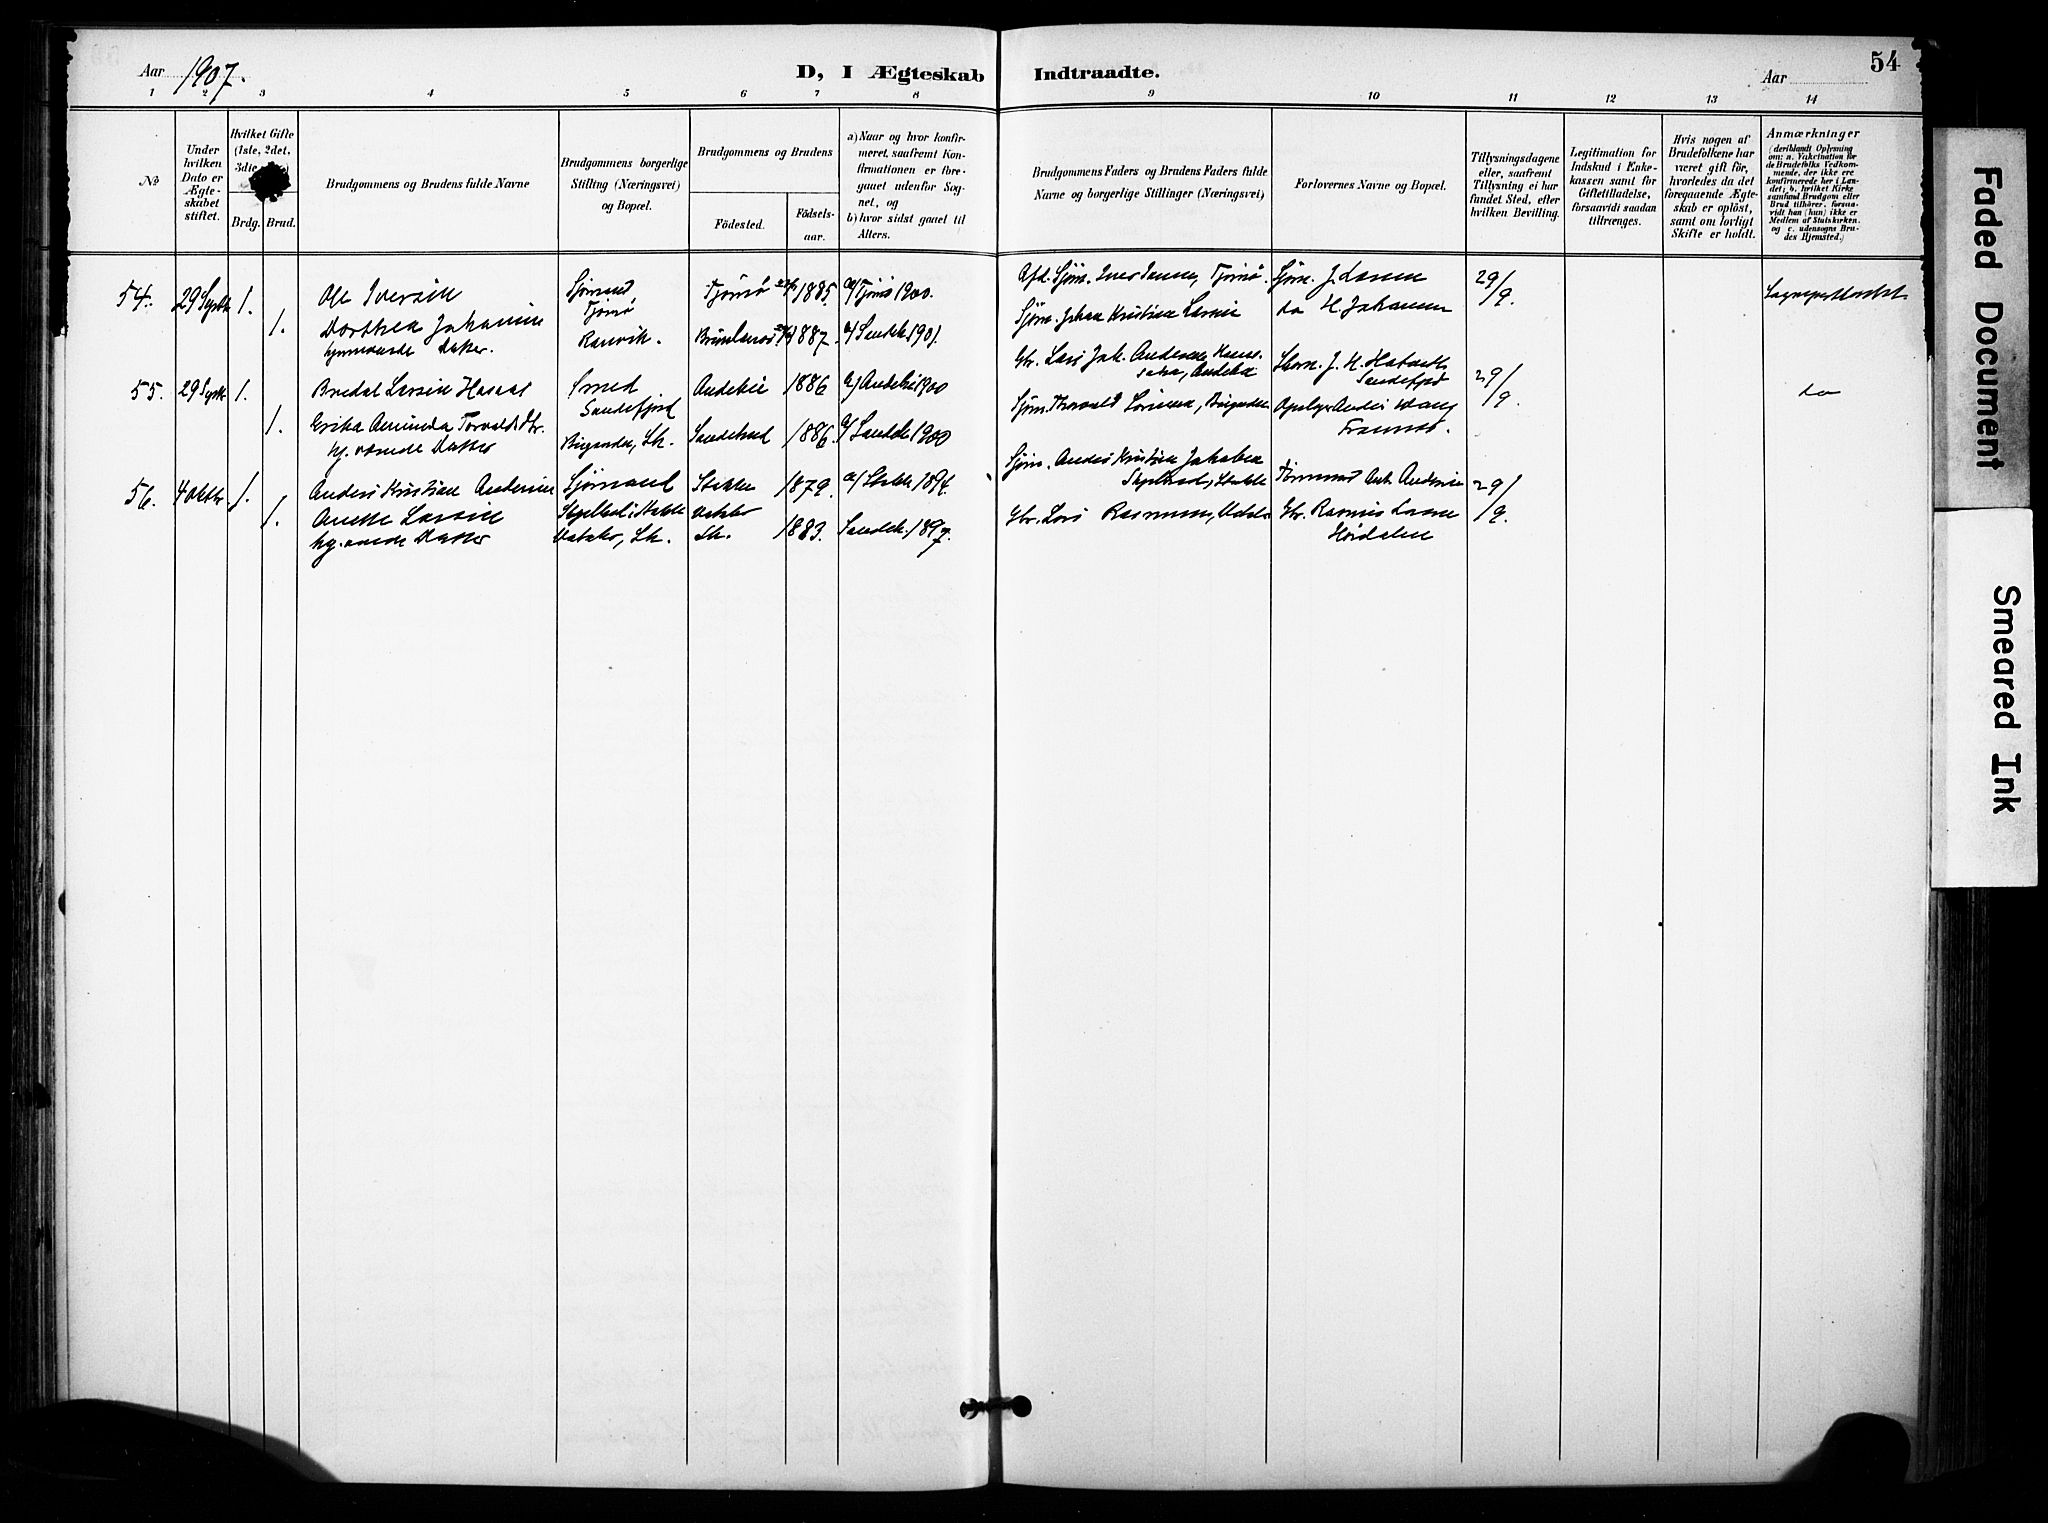 Aar 1907.
D, I Ægteskab Indtraadte.
Aar
54
1 2 3 4 5 6 7 8 9 10 11 12 13 14
No
Under hvilken Dato er Ægteskabet stiftet.
Hvilket Gifte (1ste, 2det, 3die
Brdg. Brud.
Brudgommens og Brudens fulde Navne
Brudgommens borgerlige Stilling (Næringsvei) og Bopæl.
Brudgommens og Brudens
Födested.
Födselsaar.
a) Naar og hvor konfirmeret, saafremt Konfirmationen er foregaaet udenfor Sognet, og
b) hvor sidst gaaet til Alters.
Brudgommens Faders og Brudens Faders fulde Navne og borgerlige Stillinger (Næringsvei)
Forlovernes Navne og Bopæl.
Tillysningsdagene eller, saafremt Tillysning ei har fundet Sted, efter hvilken Bevilling.
Legitimation for Indskud i Enkekassen samt for Giftetilladelse, forsaavidt saadan tiltrænges.
Hvis nogen af Brudefolkene har været gift för, hvorledes da det foregaaende Ægteskab er oplöst, samt om lovligt Skifte er holdt.
Anmærkninger (deriblandt Oplysning om: a. Vakcination for de Brudefolks Vedkommende, der ikke ere konfirmerede her i Landet; b. hvilket Kirkesamfund Brudgom eller Brud tilhörer, forsaavidt han (hun) ikke er Medlem af Statskirken, og c. udensogns Brudes Hjemsted.)
54. 29 Septb 1. Ole Iversen Sjömand Tjömö Tjömö 1885. a/ Tjömö 1900. Afd. Sjöm. Iver Jansen, Tjömö. Sjöm. J. Larsen 29/9.
1. Dorthea Johannine hjemmev. Datter. Ranvik. Brunlanes 1887. a/ Sandeh. 1901. Sjöm. Johan Kristian Larsen do H. Johansen
55. 29 Septb 1. Bredal Larsen Haasas Smed Sandefjord Andebu 1886 a/ Andebu 1900 Gbr. Lars Jak. Andersen Andebu J. H. Sandefjord 29/9. do
1. Erika Aminda Torvaldsdtr. hj. værende Datter Bugaarden, Sh. Sandeherred 1886. a/ Sandeh 1900 Sjöm. Thorvald Bugaarden Anders Wang Framnæs.
56. 4 Oktbr. 1. Anders Kristian Andersen Sjömand Stokke 1879. a/ Stokke 1894. Sjöm. Anders Kristian Jakobsen Stokke Tömmerm. Ant. Andersen 29/9.
1. Anette Larsen hj. værende Datter Sh. Sh. 1883. Sandeh. 1897. Gbr. Lars Rasmussen, Gbr. Rasmus Larsen Hjördalen
Faded Document
Smeared Ink